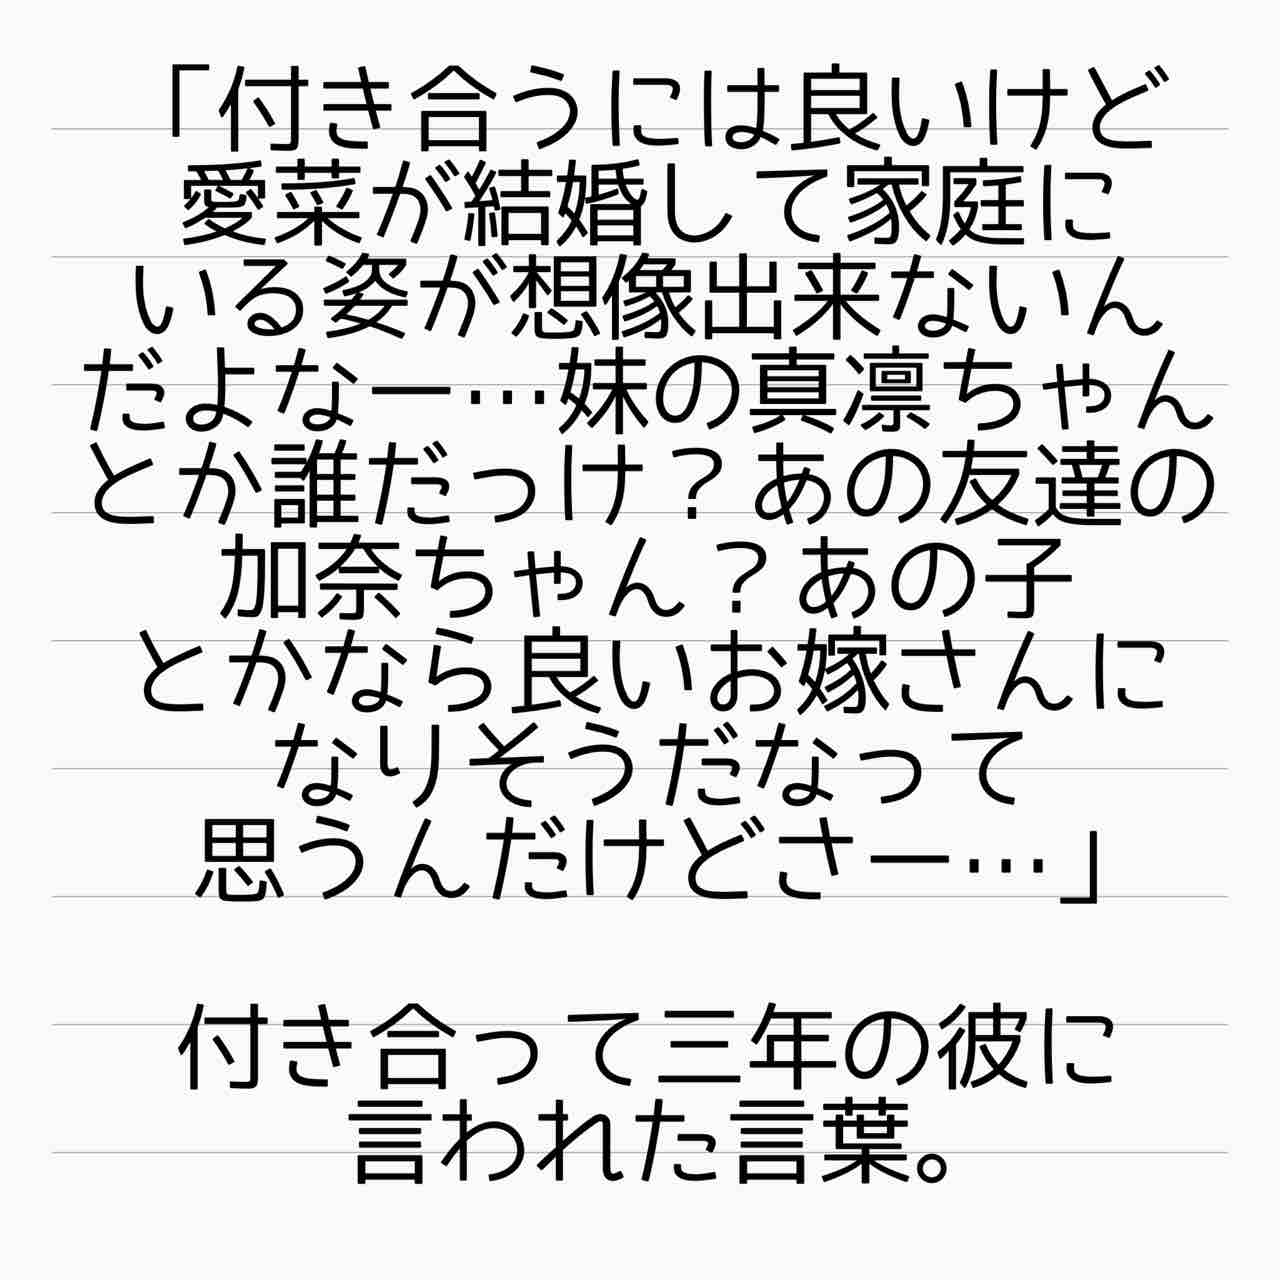 「付き合うには良いけど
愛菜が結婚して家庭に
いる姿が想像出来ないん
だよなー…妹の真凛ちゃん
とか誰だっけ？あの友達の
加奈ちゃん？あの子
とかなら良いお嫁さんに
なりそうだなって
思うんだけどさー…」
付き合って三年の彼に
言われた言葉。